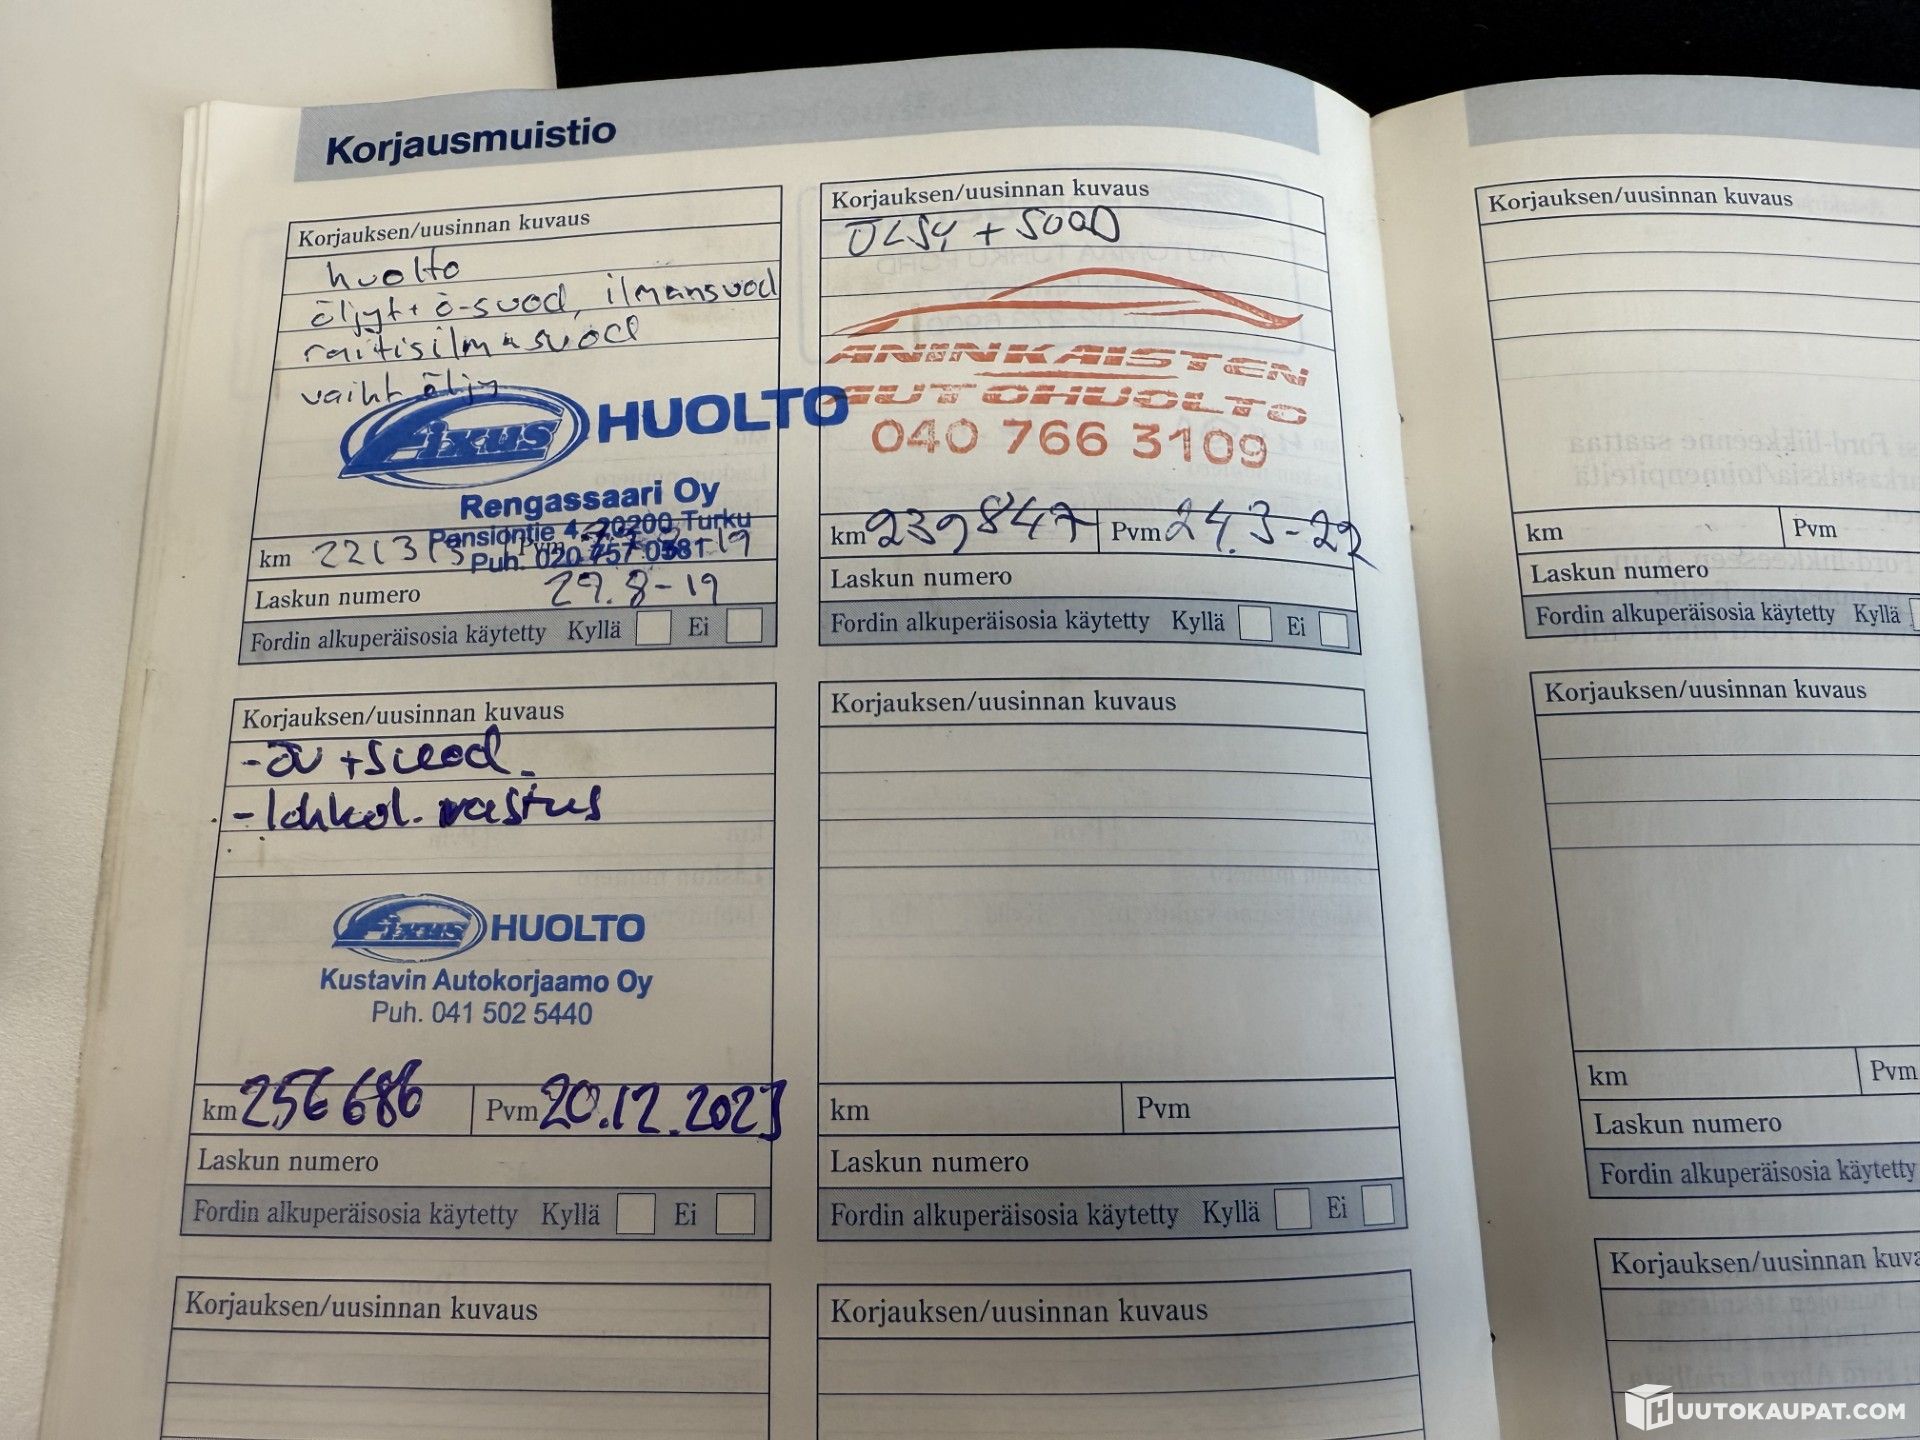 Korjausmuistio
Korjauksen/uusinnan kuvaus
huolto
öljyt+ ö-suod, ilmansuod
raitisilmasuod
vaiht öljy
Fixus HUOLTO
Rengassaari Oy
Pansiontie 4, 20200 Turku
Puh. 020 757 0381
km 221313 Pvm
Laskun numero 29.8-19
Fordin alkuperäisosia käytetty Kyllä Ei
Korjauksen/uusinnan kuvaus
ÖLJY + SUOD
ANINKAISTEN
AUTOHUOLTO
040 766 3109
km 239847 Pvm 24.3-22
Laskun numero
Fordin alkuperäisosia käytetty Kyllä Ei
Korjauksen/uusinnan kuvaus
-öv +suod.
- lohkol. vastus
Fixus HUOLTO
Kustavin Autokorjaamo Oy
Puh. 041 502 5440
km 256686 Pvm 20.12.2023
Laskun numero
Fordin alkuperäisosia käytetty Kyllä Ei
Korjauksen/uusinnan kuvaus
km Pvm
Laskun numero
Fordin alkuperäisosia käytetty Kyllä Ei
Korjauksen/uusinnan kuvaus
Korjauksen/uusinnan kuvaus
Korjauksen/uusinnan kuvaus
km Pvm
Laskun numero
Fordin alkuperäisosia käytetty Kyllä
Korjauksen/uusinnan kuvaus
km Pvm
Laskun numero
Fordin alkuperäisosia käytetty
Korjauksen/uusinnan kuva
HUUTOKAUPAT.COM